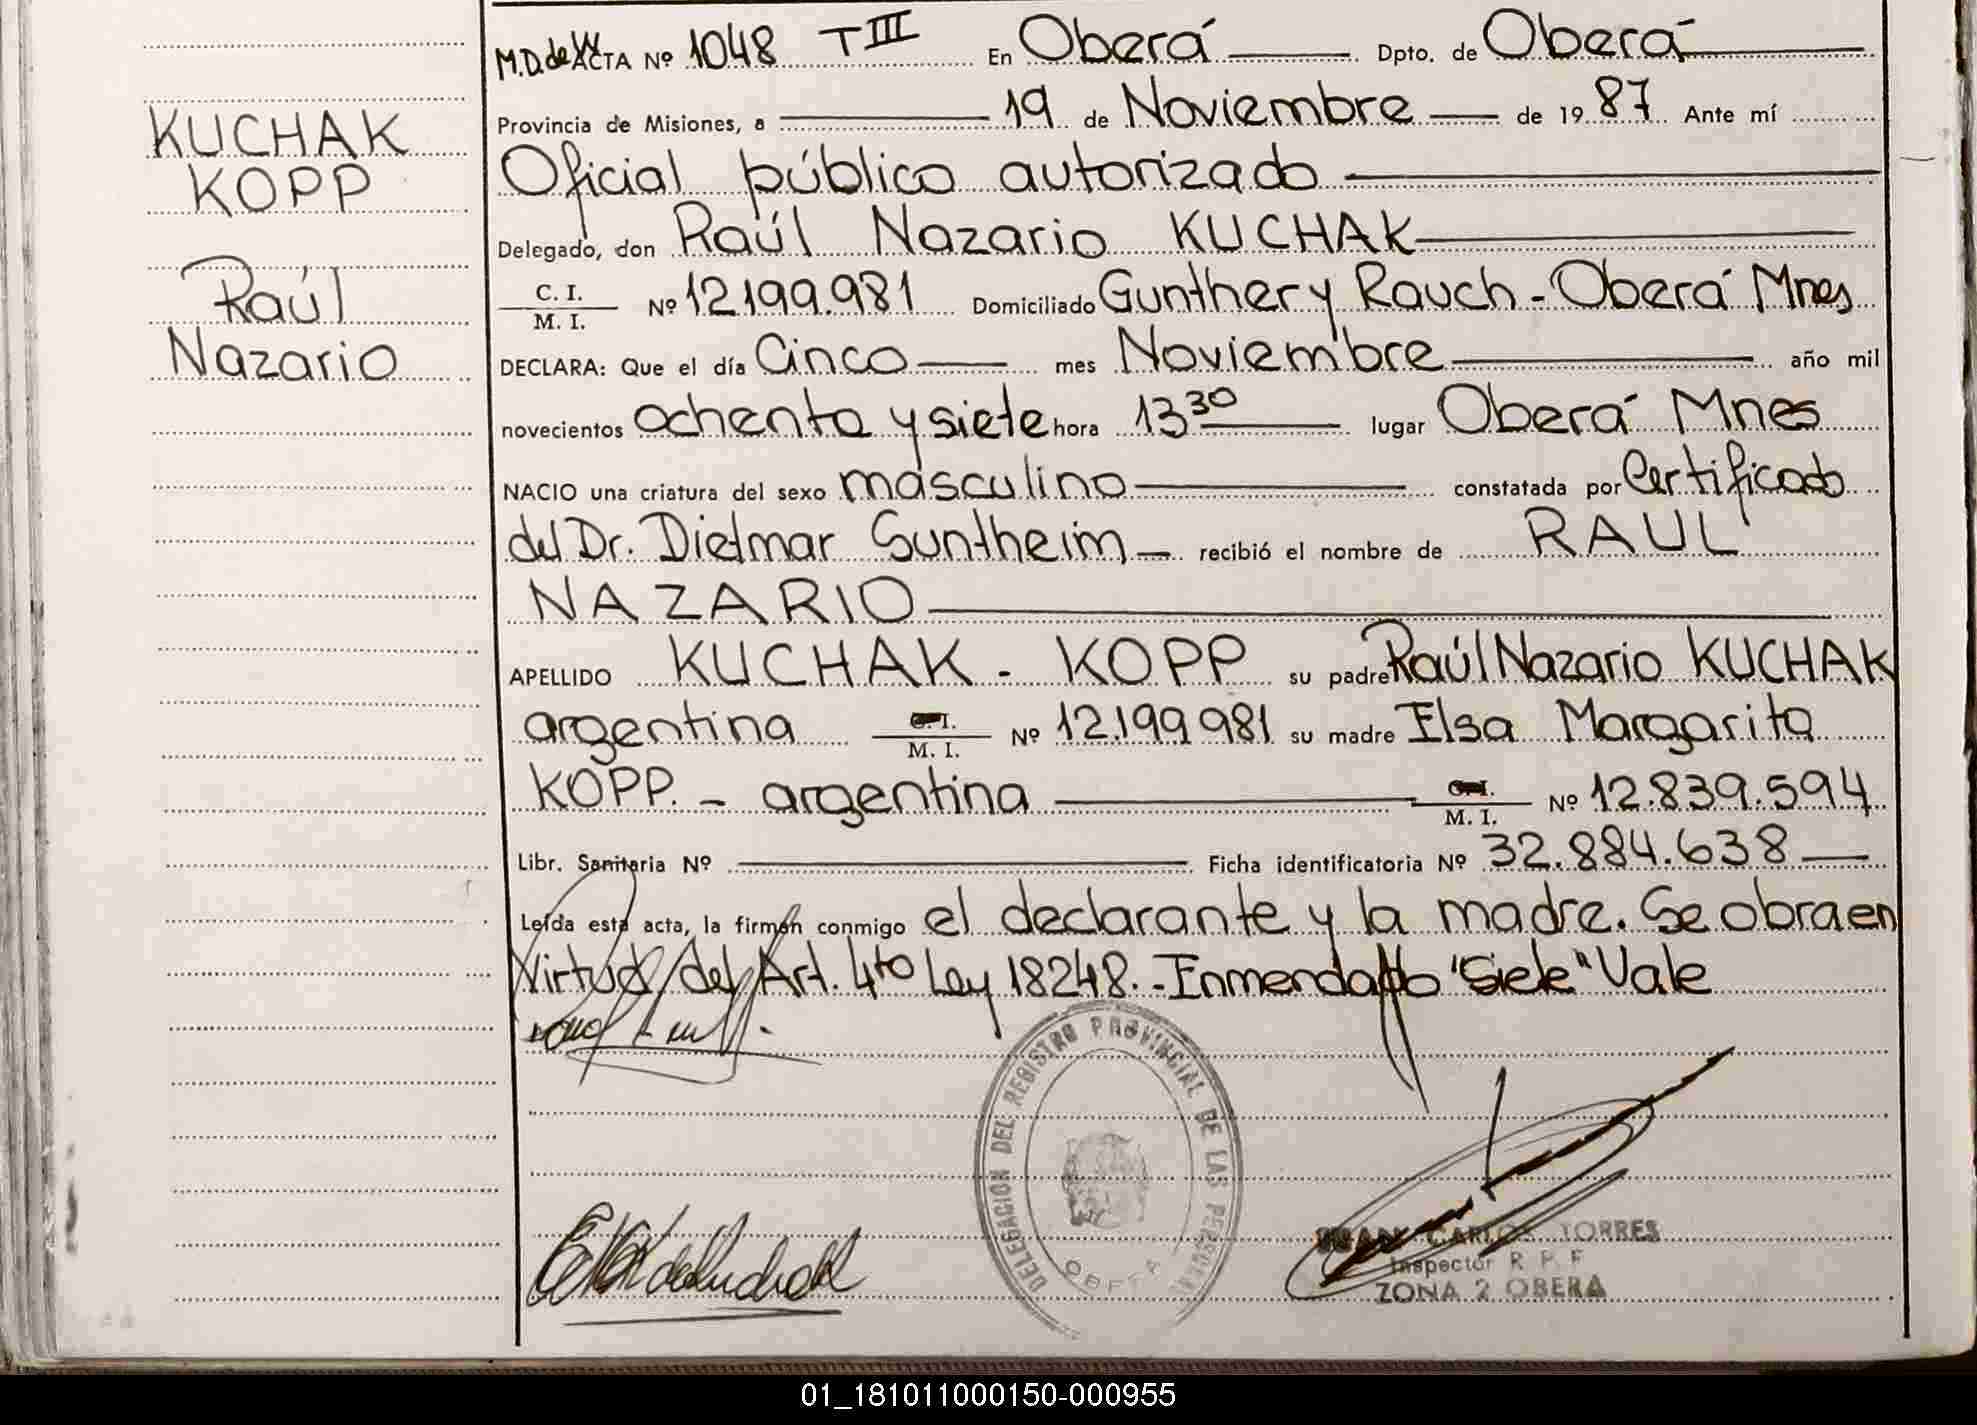 M.D. de W ACTA Nº 1048 T III En Oberá Dpto. de Oberá
KUCHAK
KOPP
Raúl
Nazario
Provincia de Misiones, a 19 de Noviembre de 1987 Ante mí
Oficial público autorizado
Delegado, don Raúl Nazario KUCHAK
C. I. / M. I. Nº 12.199.981 Domiciliado Gunther y Rauch - Oberá Mnes
DECLARA: Que el día Cinco mes Noviembre año mil
novecientos ochenta y siete hora 13 30 lugar Oberá Mnes
NACIO una criatura del sexo masculino constatada por Certificado
del Dr. Dietmar Suntheim recibió el nombre de RAUL
NAZARIO
APELLIDO KUCHAK - KOPP su padre Raúl Nazario KUCHAK
argentina M. I. Nº 12.199.981 su madre Elsa Margarita
KOPP. - argentina M. I. Nº 12.839.594
Libr. Sanitaria Nº Ficha identificatoria Nº 32.884.638
Leída esta acta, la firman conmigo el declarante y la madre. Se obra en
Virtud del Art. 4to Ley 18248. - Enmendado "Siete" Vale
DELEGACION DEL REGISTRO PROVINCIAL DE LAS PERSONAS
OBERA
JUAN CARLOS TORRES
Inspector R. P. F
ZONA 2 OBERA
01_181011000150-000955